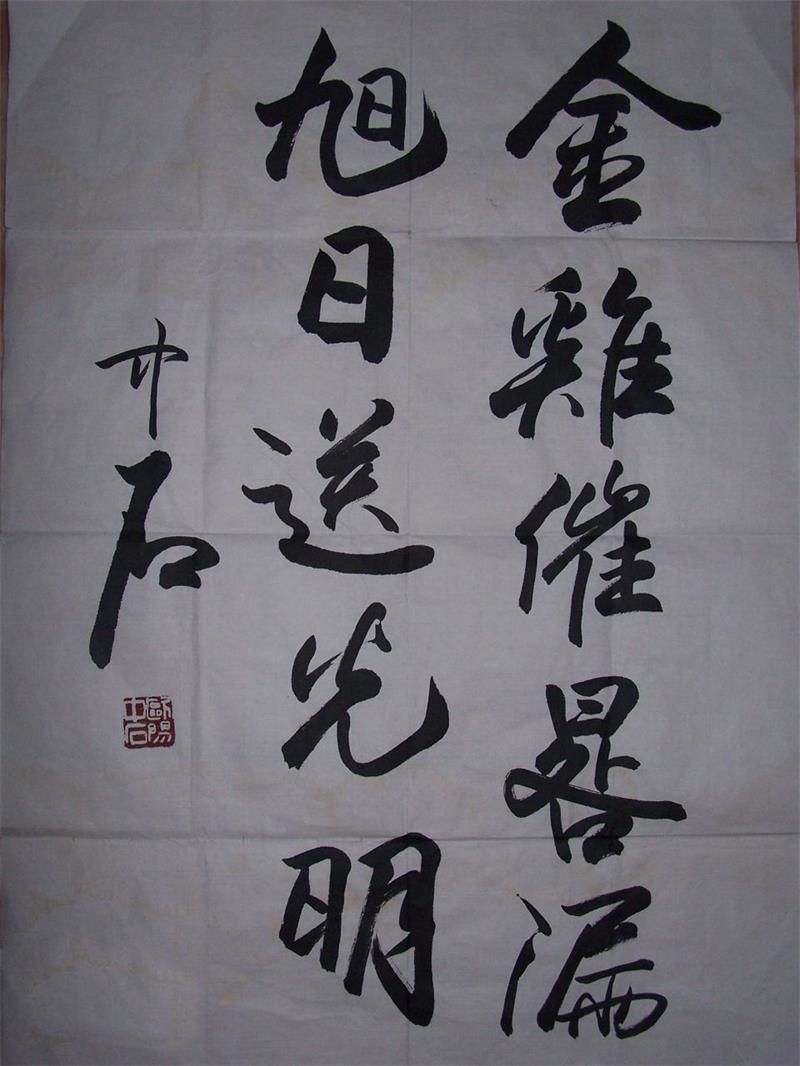 金雞催晷漏
旭日送光明
中石
歐陽中石